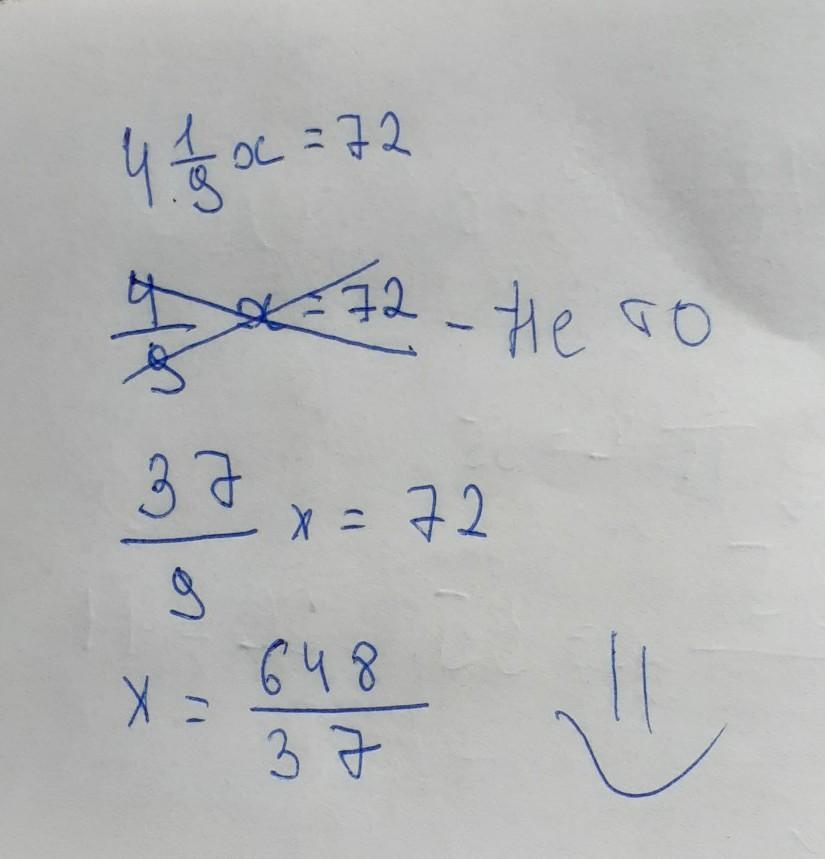 4 1/9 x = 72
4/9 x = 72 - Не то
37/9 x = 72
x = 648/37